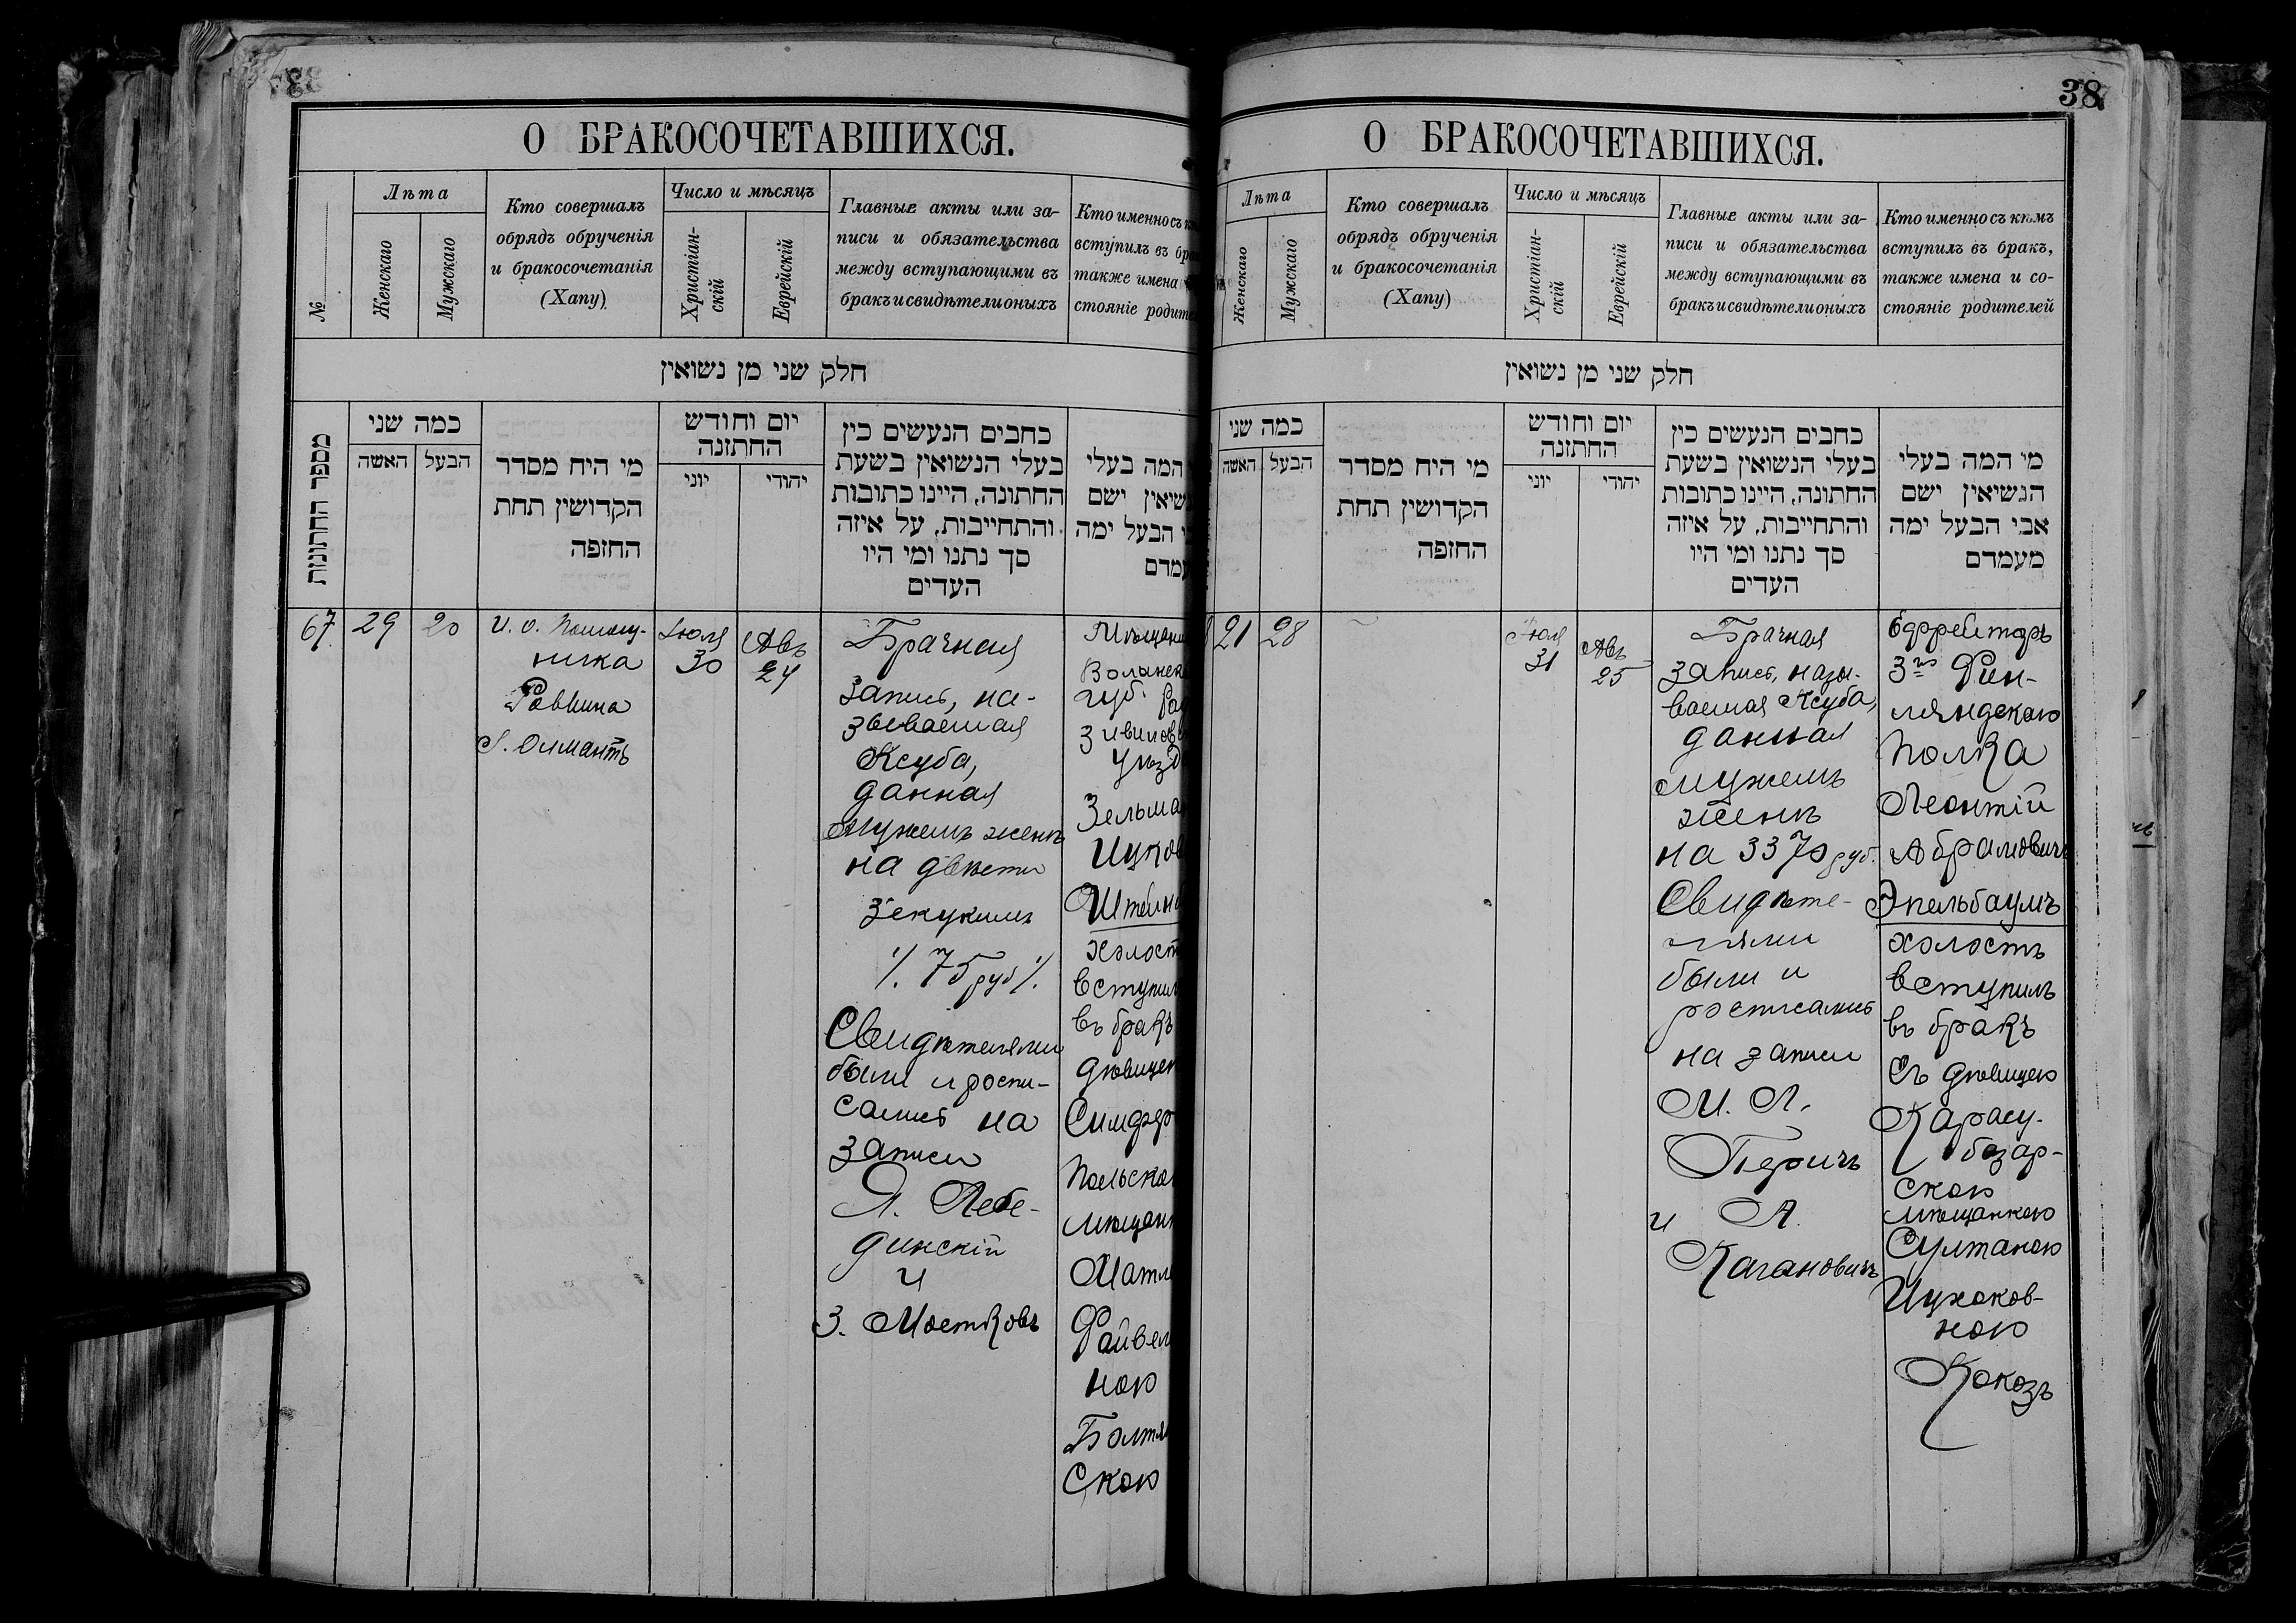 38
О БРАКОСОЧЕТАВШИХСЯ.
№
Лѣта
Женскаго
Мужскаго
Кто совершалъ
обрядъ обрученія
и бракосочетанія
(Хапу)
Число и мѣсяцъ
Христіан-
скій
Еврейскій
Главные акты или за-
писи и обязательства
между вступающими въ
бракъ и свидѣтели оныхъ
Кто именно съ
вступилъ въ
также имена
стояніе
חלק שני מן נשואין
מספר החתונות
כמה שני
האשה
הבעל
מי היח מסדר
הקדושין תחת
החופה
יום וחודש
החתונה
יוני
יהודי
כחבים הנעשים כין
בעלי הנשואין בשעת
החתונה, היינו כתובות
והתחייבות, על איזה
סך נתנו ומי היו
העדים
המה בעלי
ישם
הבעל ימה
67
29
20
И. о. Помощ-
ника
Раввина
Іюля
30
Авъ
24
Брачная
запись, на-
зываемая
Ксуба,
данная
мужемъ женѣ
на двѣсти
зекукимъ
٪ 75 руб ٪
Свидѣтелями
были и роспи-
сались на
записи
Я. Лебе-
динскій
и
З. Мостковъ
губ.
въ бракъ
ною
скою
О БРАКОСОЧЕТАВШИХСЯ.
Лѣта
Женскаго
Мужскаго
Кто совершалъ
обрядъ обрученія
и бракосочетанія
(Хапу)
Число и мѣсяцъ
Христіан-
скій
Еврейскій
Главные акты или за-
писи и обязательства
между вступающими въ
бракъ и свидѣтели оныхъ
Кто именно съ кѣмъ
вступилъ въ бракъ,
также имена и со-
стояніе родителей
חלק שני מן נשואין
כמה שני
האשה
הבעל
מי היח מסדר
הקדושין תחת
החופה
יום וחודש
החתונה
יוני
יהודי
כחבים הנעשים כין
בעלי הנשואין בשעת
החתונה, היינו כתובות
והתחייבות, על איזה
סך נתנו ומי היו
העדים
מי המה בעלי
הנשיאין ישם
אבי הבעל ימה
מעמדם
21
28
Іюля
31
Авъ
25
Брачная
запись, назы-
ваемая Ксуба,
данная
мужемъ
женѣ
на 3370 руб.
Свидѣте-
лями
были и
росписались
на записи
М. Л.
Перичъ
и А.
Кагановичъ
Ефрейторъ
3го Фин-
ляндскаго
полка
Леонтій
Абрамовичъ
Эпельбаумъ
холостъ
вступилъ
въ бракъ
съ дѣвицею
Карасу-
базар-
скою
мѣщанкою
Султаною
Ицхаков-
ною
Кокозъ